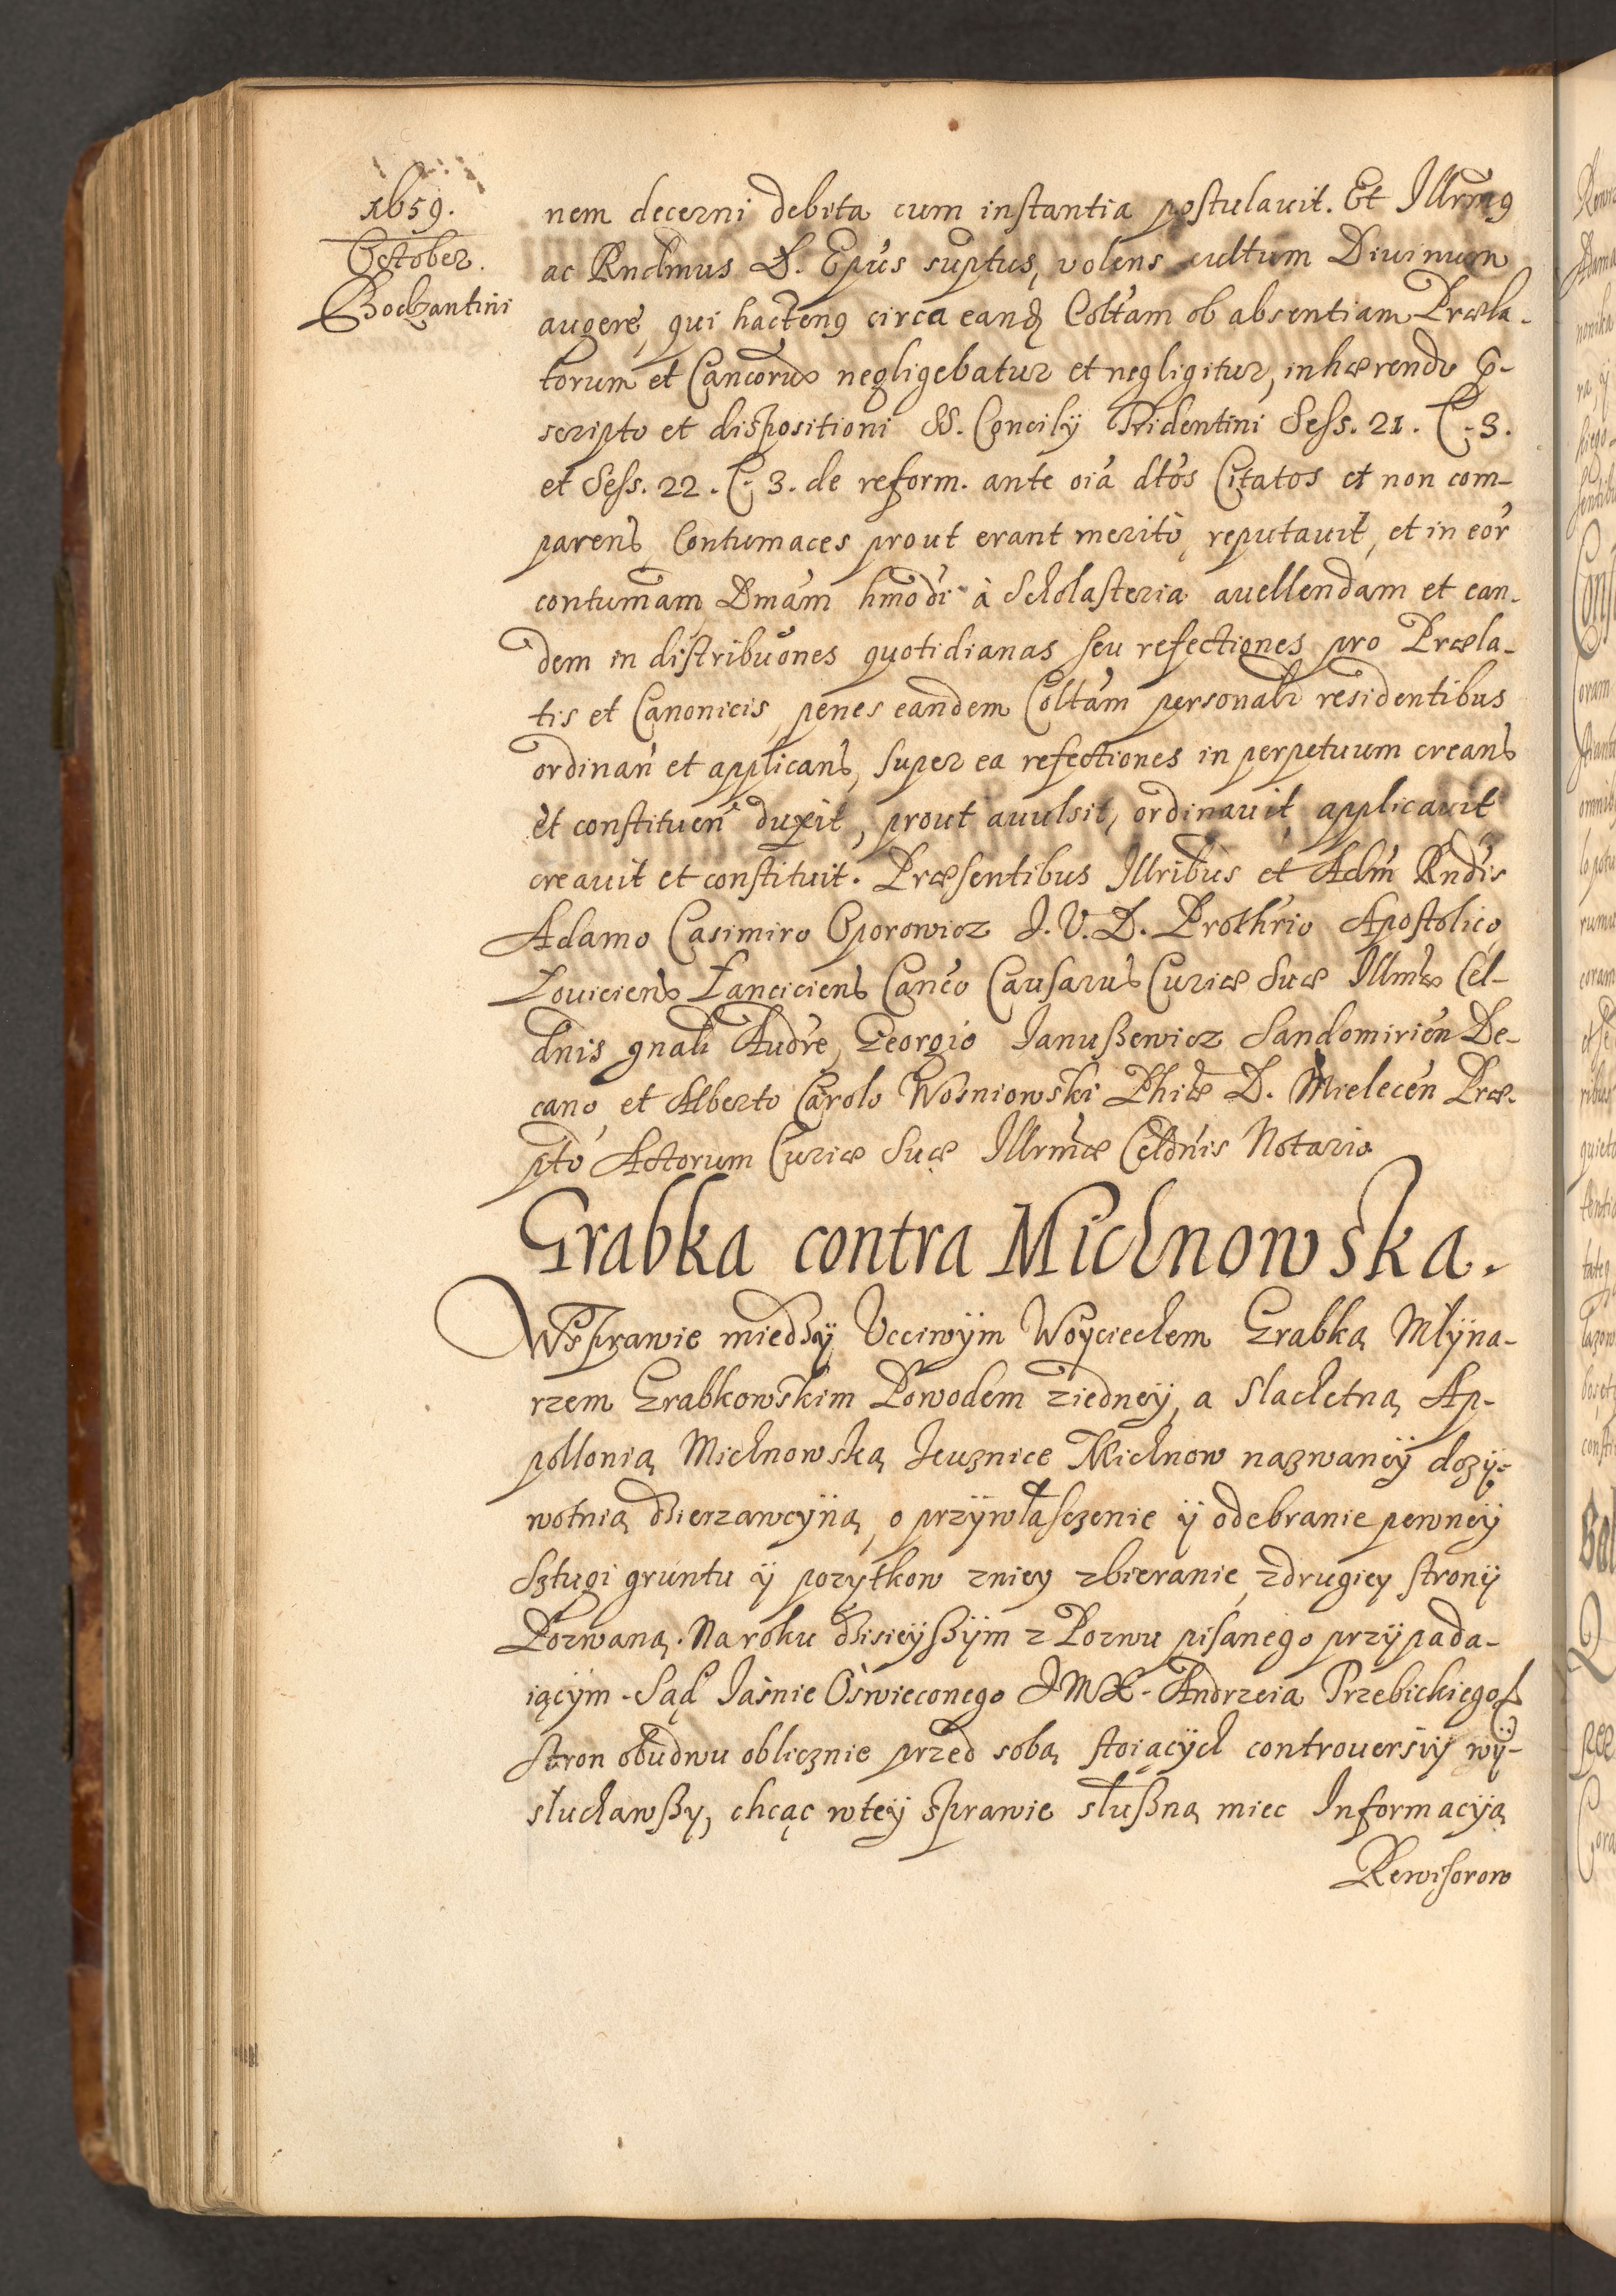 1659.
October.
Bodzantini
nem decerni debita cum instantia postulavit. Et Illrmus
ac Rndmus D. Epus suptus, volens cultum Divinum
augere, qui hactenus circa eandem Coltam ob absentiam Præla-
torum et Cancorum negligebatur et negligitur, inhærendo p-
scripto et dispositioni SS. Concilÿ Tridentini Sess. 21. C. 3.
et Sess. 22. C. 3. de reform. ante oia dtos Citatos et non com-
parens, Contumaces prout erant merito, reputavit, et in eor
contumam Dmam hmodi à Scholasteria avellendam et ean-
dem in distribuones quotidianas seu refectiones pro Præla-
tis et Canonicis, penes eandem Coltam personalr residentibus
ordinan et applicans, super ea refectiones in perpetuum creans
et constituen duxit, prout avulsit, ordinavit, applicavit
creavit et constituit. Præsentibus Illribus et Adm Rndis
Adamo Casimiro Oporowicz J. V. D. Prothrio Apostolico,
Loviciens Lanciciens Canco Causarum Curiæ Suæ Illmæ Cel-
dnis gnali Audre, Georgio Januszewicz Sandomirien De-
cano, et Alberto Carolo Wosniowski Phiæ D. Mielecen Præ-
pto Actorum Curiæ Suæ Illrmæ Celdnis Notario
Grabka contra Michnowska.
W sprawie miedzÿ Vcciwÿm Woÿciechem Grabką Młÿna-
rzem Grabkowskim Powodem ziedneÿ, a Slachetną Ap-
pollonią Michnowską Kuznice Michnow nazwaneÿ dozÿ-
wotnią dzierzawcÿną, o przÿwłasczenie ÿ odebranie pewneÿ
Sztugi gruntu ÿ pozytkow zniey zbieranie, zdrugiey stronÿ
Pozwaną. Na roku dzisieÿszÿm z Pozwu pisanego przÿpada-
iącÿm. Sąd Iaśnie Oświeconego JMX. Andrzeia Trzebickiego
stron obudwu oblicznie przed sobą stoiącÿch controversiÿ wÿ-
słuchawszy, chcąc wteÿ sprawie słuszną miec Informacyją
Rewisorow